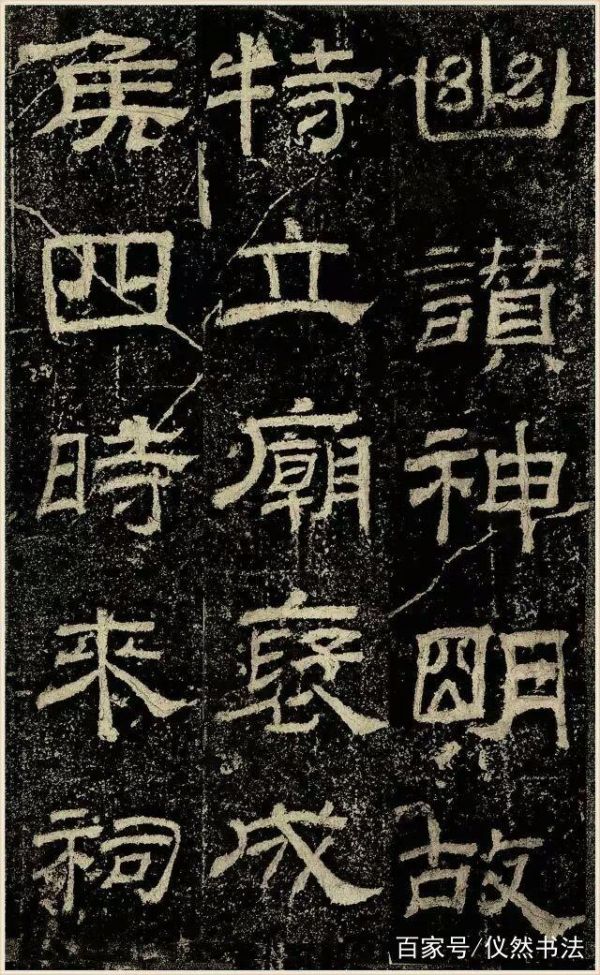 幽讚神明故
特立廟褒成
侯四時來祠
百家号/仪然书法